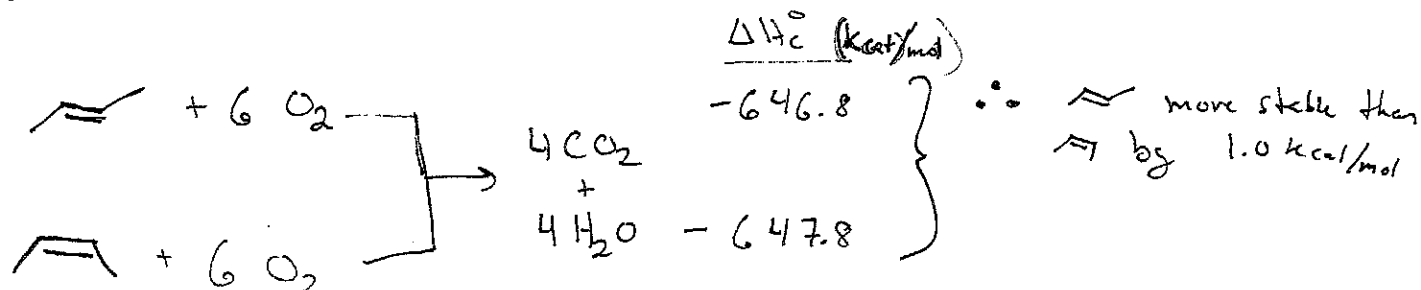 ΔHc° (kcal/mol)
+ 6 O2
-646.8
4CO2
+
4H2O
-647.8
+ 6 O2
∴ more stable than
by 1.0 kcal/mol